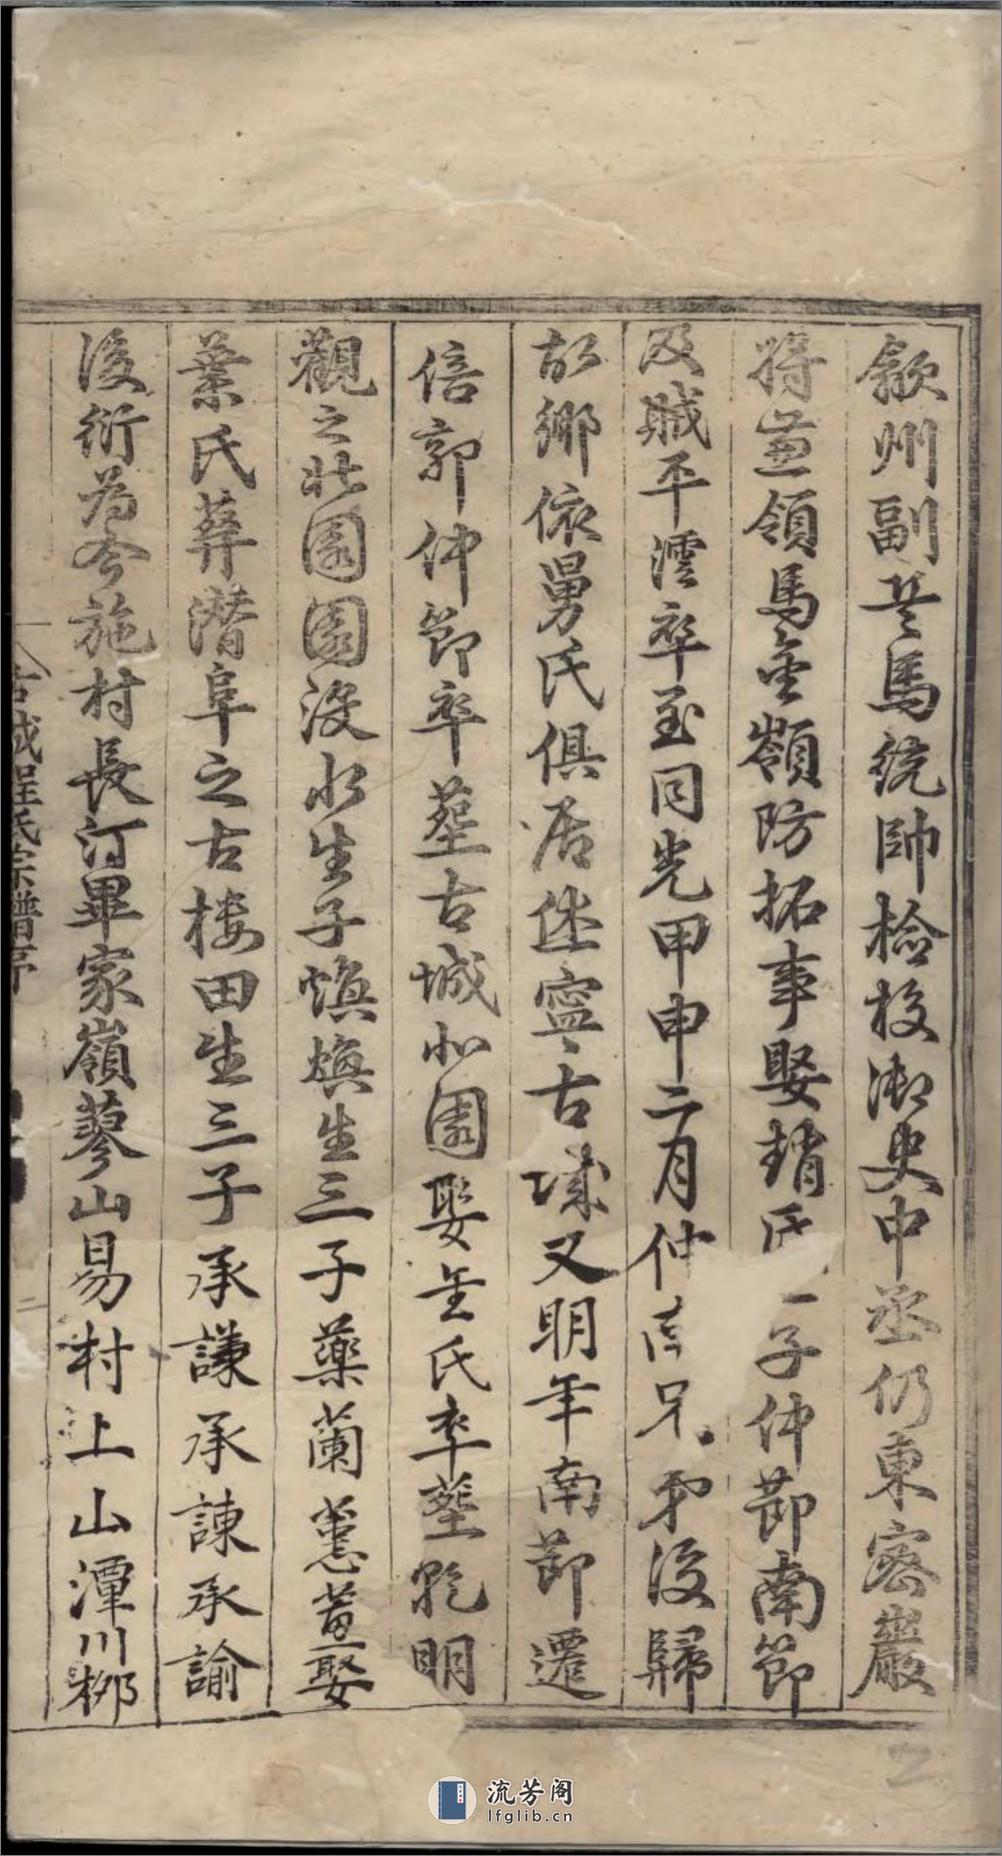 歙州副兵馬統帥檢校御史中丞仍東密巖
將兼領馬金嶺防拓事娶 氏 子仲節南節
及賊平澐卒至同光甲申二月仲 兄弟後歸
故鄉依舅氏俱居 寧古城又明年南節遷
倍郭仲節卒葬古城北園娶 氏卒葬乾明
觀之北園園没水生子煥煥生三子藥蘭蕙蕙娶
葉氏葬潜阜之古楼田生三子承謙承諫承諭
後衍为今施村長汀畢家嶺蓼山易村上山潭川栁
古城程氏宗譜序
二
流芳阁
lfglib.cn